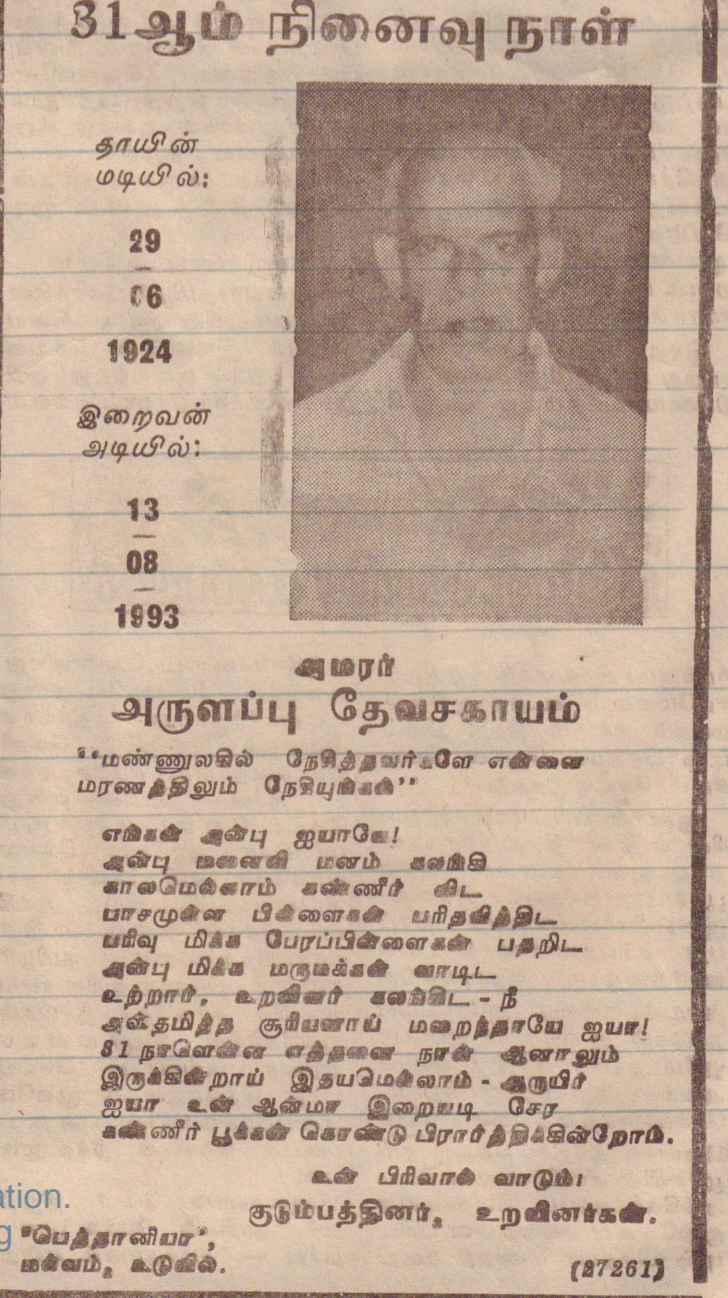 31ஆம் நினைவு நாள்
தாயின்
மடியில்:
29
06
1924
இறைவன்
அடியில்:
13
08
1993
அமரர்
அருளப்பு தேவசகாயம்
"மண்ணுலகில் நேசித்தவர்களே என்னை
மரணத்திலும் நேசியுங்கள்"
எங்கள் அன்பு ஐயாவே!
அன்பு மனைவி மனம் கலங்கி
காலமெல்லாம் கண்ணீர் விட
பாசமுள்ள பிள்ளைகள் பரிதவித்திட
பரிவு மிக்க பேரப்பிள்ளைகள் பதறிட
அன்பு மிக்க மருமக்கள் வாடிட
உற்றார், உறவினர் கலங்கிட - நீ
அஸ்தமித்த சூரியனாய் மறைந்தாயே ஐயா!
31 நாளென்ன எத்தனை நாள் ஆனாலும்
இருக்கின்றாய் இதயமெல்லாம் - ஆருயிர்
ஐயா உன் ஆன்மா இறையடி சேர
கண்ணீர் பூக்கள் கொண்டு பிரார்த்திக்கின்றோம்.
உன் பிரிவால் வாடும்
குடும்பத்தினர், உறவினர்கள்.
"பெத்தானியா",
மல்வம், உடுவில்.
(27261)
ation.
g